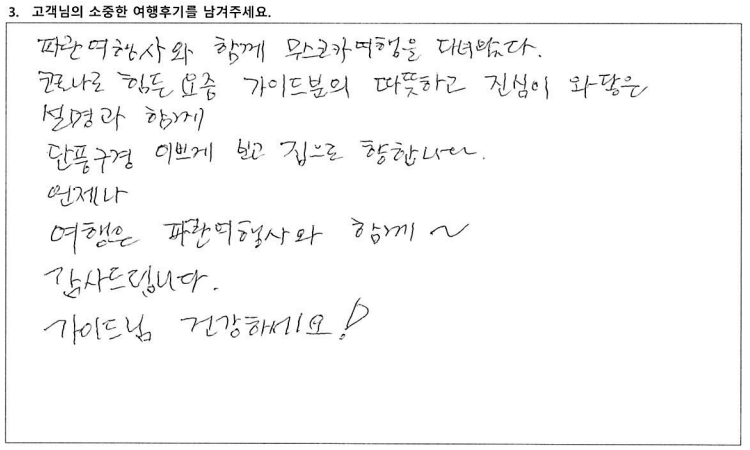 3. 고객님의 소중한 여행후기를 남겨주세요.
파란여행사와 함께 무스코카여행을 다녀왔다.
코로나로 힘든 요즘 가이드분의 따뜻하고 진심이 와닿은
설명과 함께
단풍구경 이쁘게 보고 집으로 향합니다.
언제나
여행은 파란여행사와 함께 ~
감사드립니다.
가이드님 건강하세요!